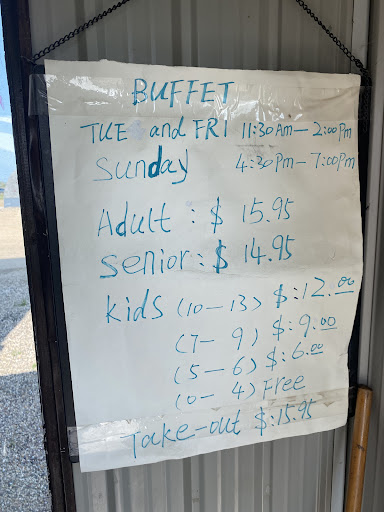 BUFFET
TUE and FRI 11:30 Am - 2:00 Pm
Sunday 4:30 Pm - 7:00 Pm
Adult : $ 15.95
Senior : $ 14.95
kids (10 - 13) $ : 12.00
(7 - 9) $ : 9.00
(5 - 6) $ : 6.00
(0 - 4) Free
Take-out $ : 15.95